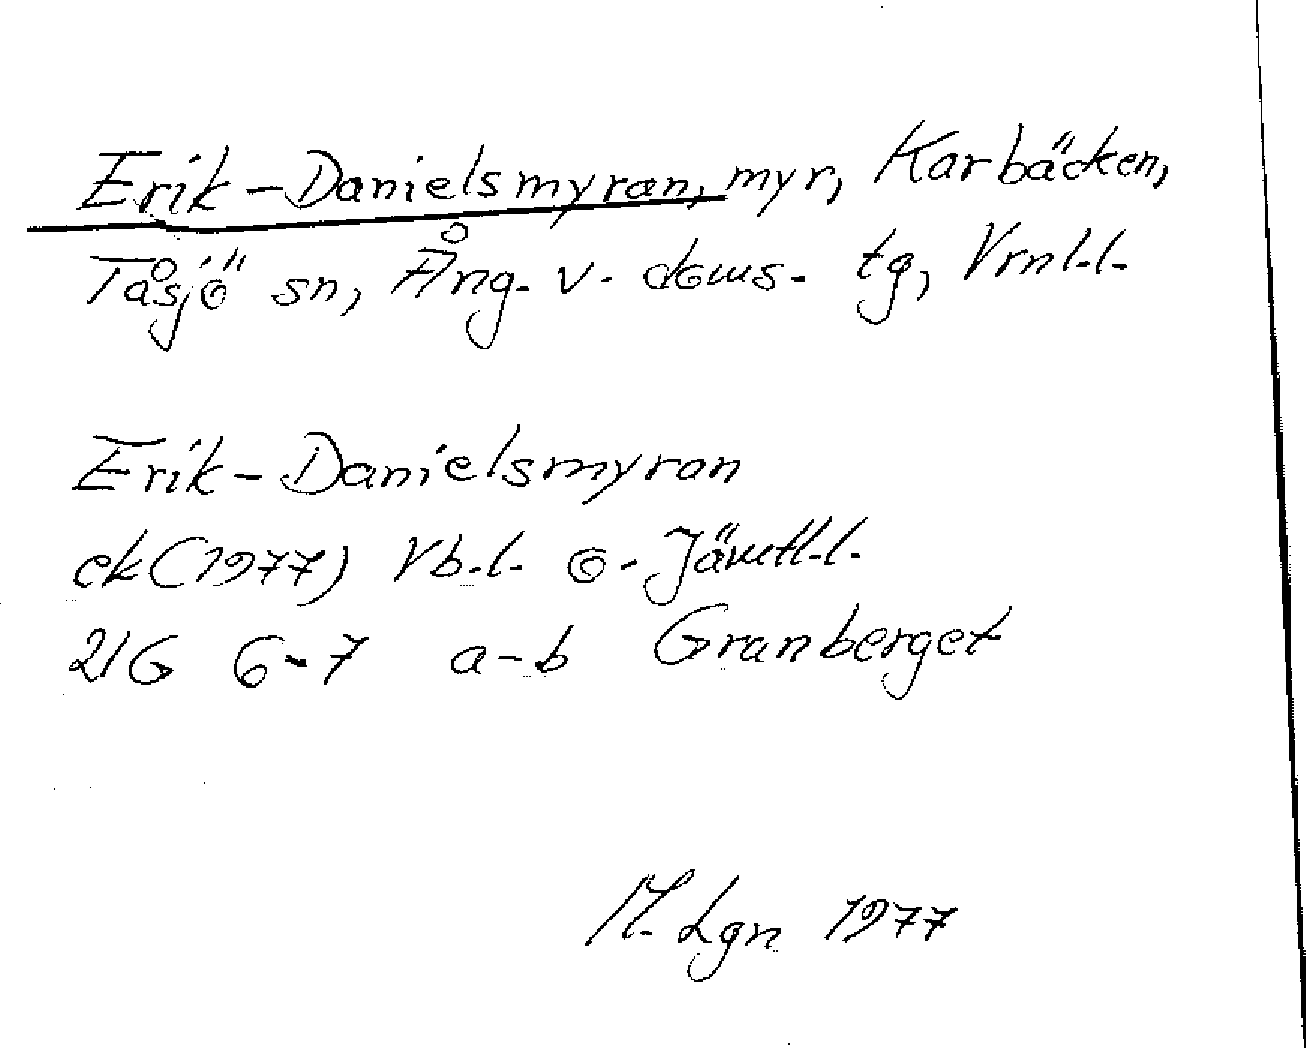 Erik-Danielsmyran, myr, Karbäcken,
Tåsjö sn, Ång. v. doms. tg, Vrnl.l.
Erik-Danielsmyran
ek(1977) Vb.l. o. Jämtl.l.
21G 6-7 a-b Granberget
M. Lgn 1977